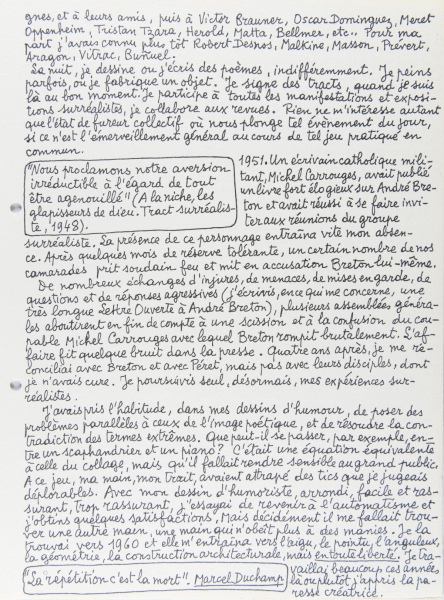 gnes, et à leurs amis, puis à Victor Brauner, Oscar Dominguez, Meret
Oppenheim, Tristan Tzara, Herold, Matta, Bellmer, etc.. Pour ma
part j'avais connu plus tôt Robert Desnos, Malkine, Masson, Prévert,
Aragon, Vitrac, Buñuel.
La nuit, je dessine ou j'écris des poèmes, indifféremment. Je peins
parfois, ou je fabrique un objet. Je signe des tracts, quand je suis
là au bon moment. Je participe à toutes les manifestations et exposi-
tions surréalistes, je collabore aux revues. Rien ne m'intéresse autant
que l'état de fureur collectif où nous plonge tel évènement du jour,
si ce n'est l'émerveillement général au cours de tel jeu pratiqué en
commun.
"Nous proclamons notre aversion
irréductible à l'égard de tout
être agenouillé" (A la niche, les
glapisseurs de dieu. Tract surréalis-
te, 1948).
1951. Un écrivain catholique mili-
tant, Michel Carrouges, avait publié
un livre fort élogieux sur André Bre-
ton et avait réussi à se faire invi-
ter aux réunions du groupe
surréaliste. La présence de ce personnage entraîna vite mon absen-
ce. Après quelques mois de réserve tolérante, un certain nombre de nos
camarades prit soudain feu et mit en accusation Breton lui-même.
De nombreux échanges d'injures, de menaces, de mises en garde, de
questions et de réponses agressives (j'écrivis, en ce qui me concerne, une
très longue Lettre Ouverte à André Breton), plusieurs assemblées généra-
les aboutirent en fin de compte à une scission et à la confusion du cou-
pable Michel Carrouges avec lequel Breton rompit brutalement. L'af-
faire fit quelque bruit dans la presse. Quatre ans après, je me ré-
conciliai avec Breton et avec Péret, mais pas avec leurs disciples, dont
je n'avais cure. Je poursuivis seul, désormais, mes expériences sur-
réalistes.
J'avais pris l'habitude, dans mes dessins d'humour, de poser des
problèmes parallèles à ceux de l'image poétique, et de résoudre la con-
tradiction des termes extrêmes. Que peut-il se passer, par exemple, en-
tre un scaphandrier et un piano? C'était une équation équivalente
à celle du collage, mais qu'il fallait rendre sensible au grand public.
A ce jeu, ma main, mon trait, avaient attrapé des tics que je jugeais
déplorables. Avec mon dessin d'humoriste, arrondi, facile et ras-
surant, trop rassurant, j'essayai de revenir à l'automatisme et
j'obtins quelques satisfactions. Mais décidément il me fallait trou-
ver une autre main, une main qui n'obéit plus à des maniés. Je la
trouvai vers 1960 et elle m'entraîna vers l'aigu, le pointu, l'anguleux,
la géométrie, la construction architecturale, mais en toute liberté. Je tra-
vaillai beaucoup ces années
là ou plutôt j'appris la pa-
resse créatrice.
"La répétition c'est la mort", Marcel Duchamp